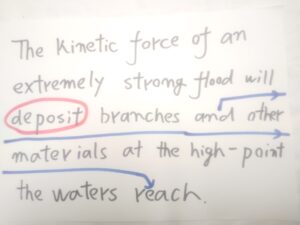 The Kinetic force of an
extremely strong flood will
deposit branches and other
materials at the high-point
the waters reach.